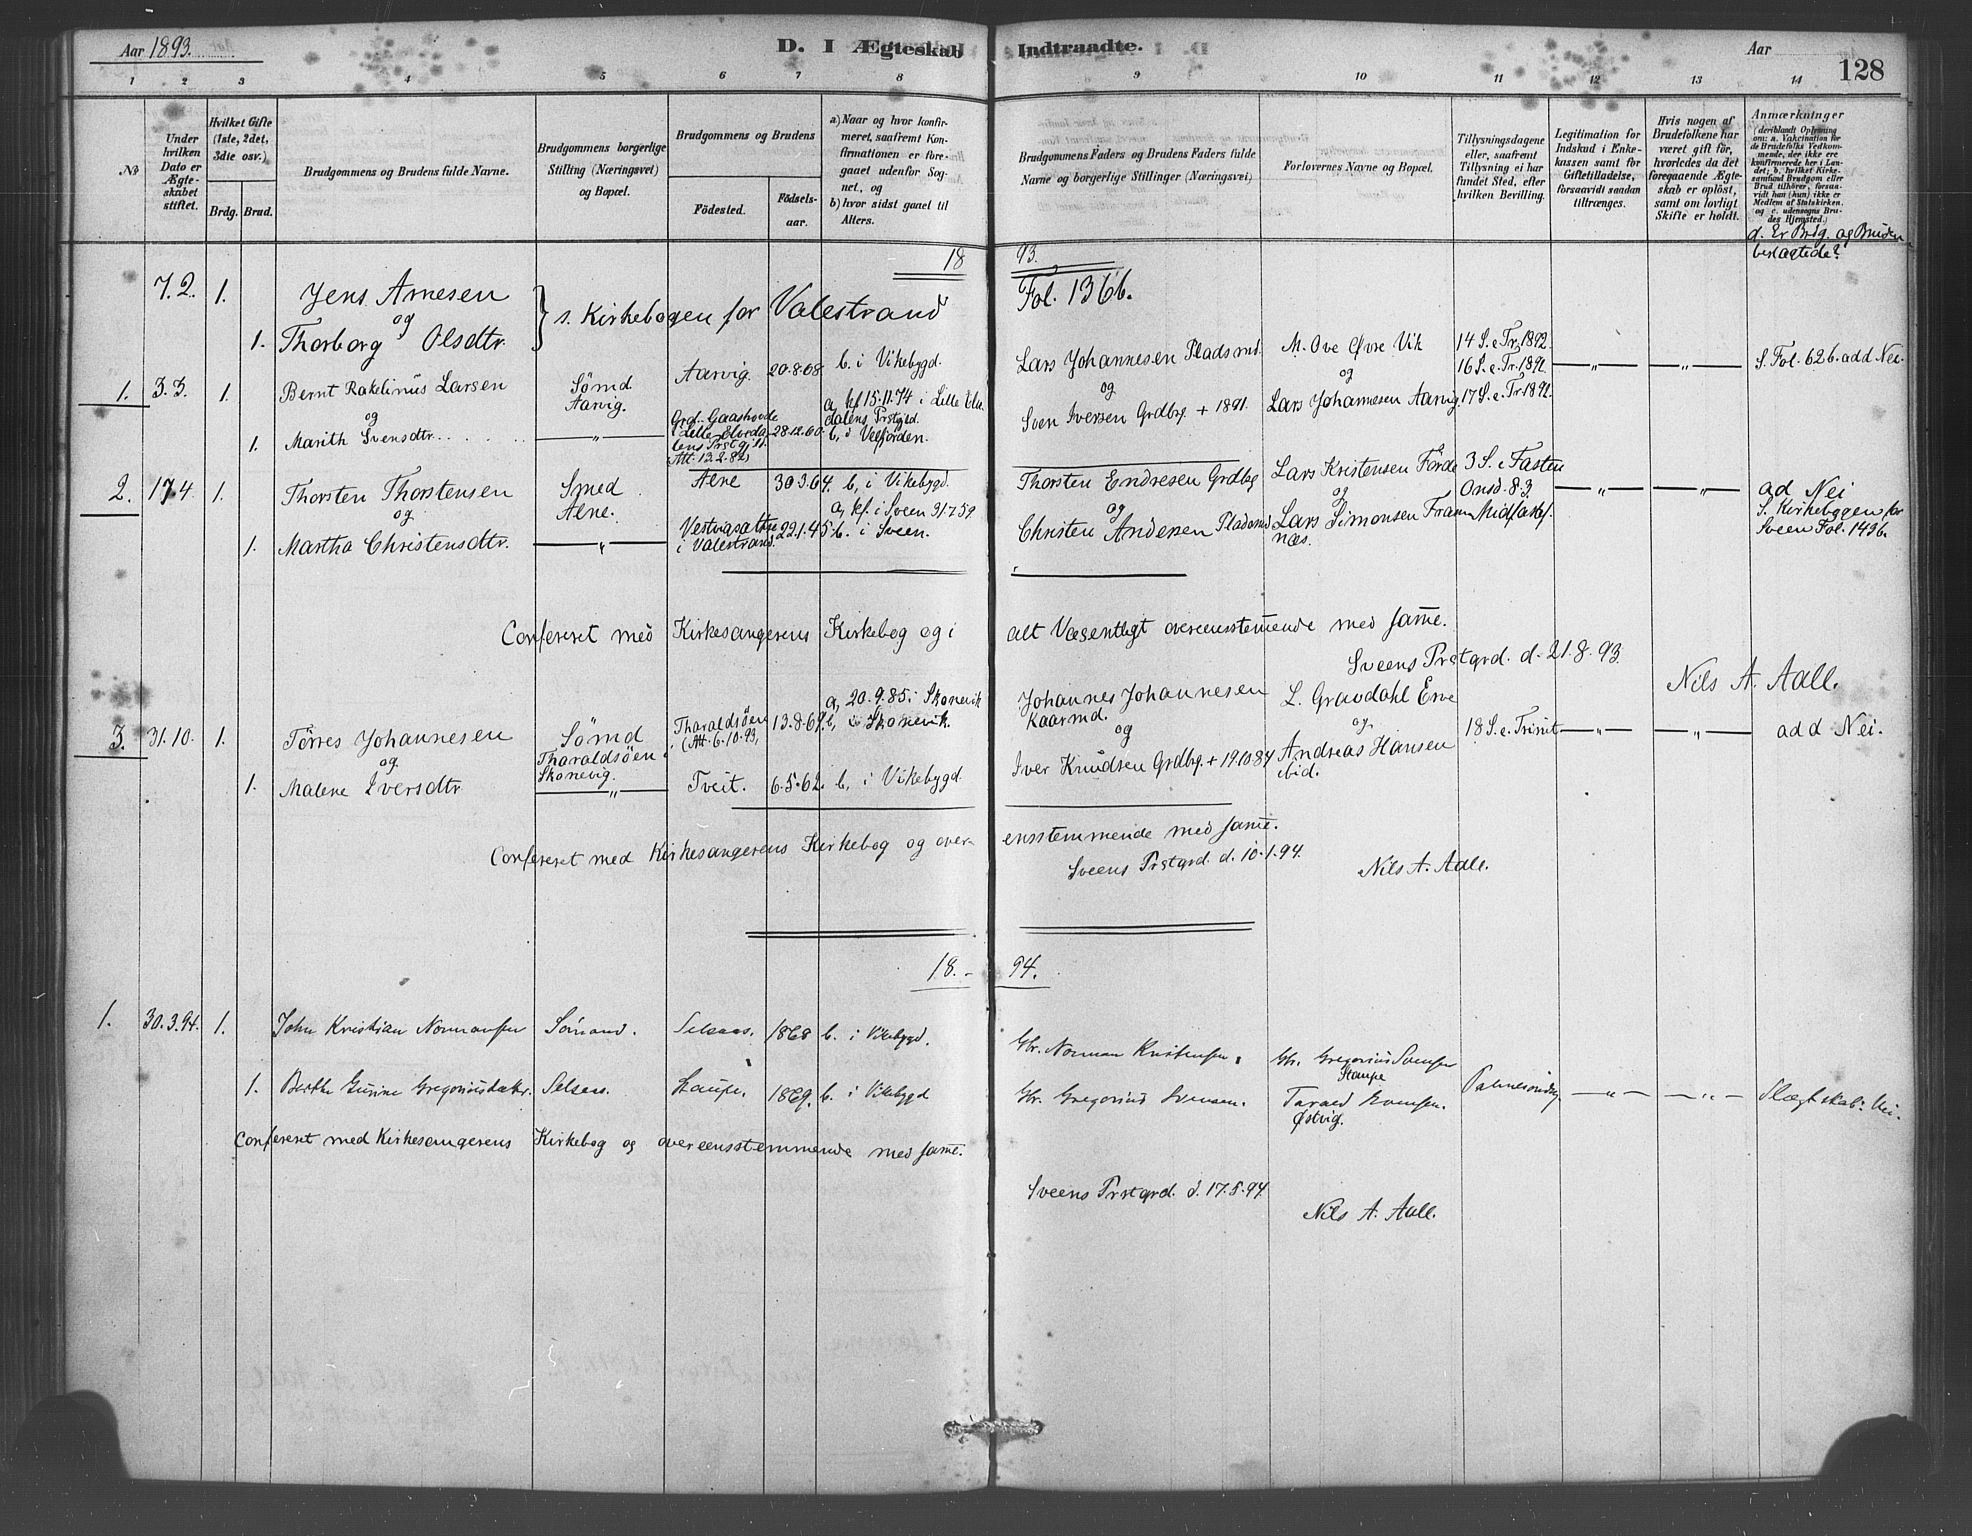 Aar 1893.
D. I Ægteskab Indtraadte.
Aar
128
1 2 3 4 5 6 7 8 9 10 11 12 13 14
No
Under hvilken Dato er Ægteskabet stiftet.
Hvilket Gifte (1ste, 2det, 3die osv.)
Brdg. Brud.
Brudgommens og Brudens fulde Navne.
Brudgommens borgerlige Stilling (Næringsvei) og Bopæl.
Brudgommens og Brudens
Födested.
Födsels-aar.
a) Naar og hvor konfirmeret, saafremt Konfirmationen er foregaaet udenfor Sognet, og
b) hvor sidst gaaet til Alters.
Brudgommens Faders og Brudens Faders fulde Navne og borgerlige Stillinger (Næringsvei)
Forlovernes Navne og Bopæl.
Tillysningsdagene eller, saafremt Tillysning ei har fundet Sted, efter hvilken Bevilling.
Legitimation for Indskud i Enkekassen samt for Giftetilladelse, forsaavidt saadan tiltrænges.
Hvis nogen af Brudefolkene har været gift før, hvorledes da det foregaaende Ægteskab er oplöst, samt om lovligt Skifte er holdt.
Anmærkninger
(deriblandt Oplysning om: a. Vakcination for de Brudefolks Vedkommende, der ikke ere konfirmerede her i Landet; b. hvilket Kirkesamfund Brudgom eller Brud tilhörer, forsaavidt han (hun) ikke er Medlem af Statskirken. og c. udensogns Brudes Hjemsted.)
d. Er Brdg. og Bruden beslægtede?
18 93.
7.2. 1. Jens Arnesen
og
1. Thorborg Olsdtr.
} s. Kirkebogen for Valestrand Fol. 136b.
1. 3.3. 1. Bernt Rakelinus Larsen Sømd Aarvig. Aarvig. 20.8.68 b. i Vikebygd. Lars Johannesen Pladsmd. M. Ove Øvre Vik 14 S. e. Tr. 1892. 16 S. e. Tr. 1892 —„— —„— S. Fol. 62 b. add Nei.
og
1. Marith Svensdtr. —„— Grd. Gaashovde i Lille Elvedalens Prstgj. (Att. 13.2.82) 28.12.60 a, kf 15.11.74 i Lille Elvdalens Prstgjd. b, i Velfjorden. Sven Iversen Grdbrg. + 1891. Lars Johannesen Aarvig. 17 S. e. Tr. 1892.
2. 17.4 1. Thorsten Thorstensen Smed Alne. Alne 30.3.64. b, i Vikebygd. Thorsten Endresen Grdbg Lars Kristensen Førde 3 S. i Fasten Onsd. 8.3. —„— —„— ad Nei
og
1. Martha Christensdtr. —„— i Valestrand. 22.1.45 a, kf. i Sveen 31.7.59 b. i Sveen. Christen Andersen Pladsmd Lars Simonsen Framnæs. Midfastsf. S. Kirkebogen for Sveen Fol. 143b.
Confereret med Kirkesangerens Kirkebog og i alt Væsentligt overeensstemmende med samme.
Sveens Prstgrd. d. 21.8.93.
Nils A. Aall.
3. 31.10. 1. Tørres Johannesen Sømd Tharaldsöen i Skonevig. Tharaldsöen (Att. 6.10.93, 13.8.69. a, 20.9.85 i Skonevik b, i Skonevik. Johannes Johannesen Kaarmd. L. Gravdahl Erve 18 S. e. Trinit —„— —„— add Nei.
og
1. Malene Iversdtr —„— Tveit. 6.5.62. b, i Vikebygd. Iver Knudsen Grdbg. + 19.10.84 Andreas Hansen ibid.
Confereret med Kirkesangerens Kirkebog og overensstemmende med samme.
Sveens Prstgrd. d. 10.1.94.
Nils A. Aall.
18.- 94.
1. 30.3.94. 1. John Kristian Normansen Sømand. Selsaas. 1868 b. i Vikebygd. Gbr. Norman Kristensen. Gbr. Gregorius Svensen Staupe
1. Berthe Gurine Gregoriusdatter. Selsaas. Staupe. 1869. b. i Vikebygd Gbr. Gregorius Svensen. Tarald Svensen. Østvig. Palmesøndag —„— —„— Slægtskab: Nei.
Confereret med Kirkesangerens Kirkebog og overeensstemmende med samme.
Sveens Prstgrd. d. 17.5.94.
Nils A. Aall.